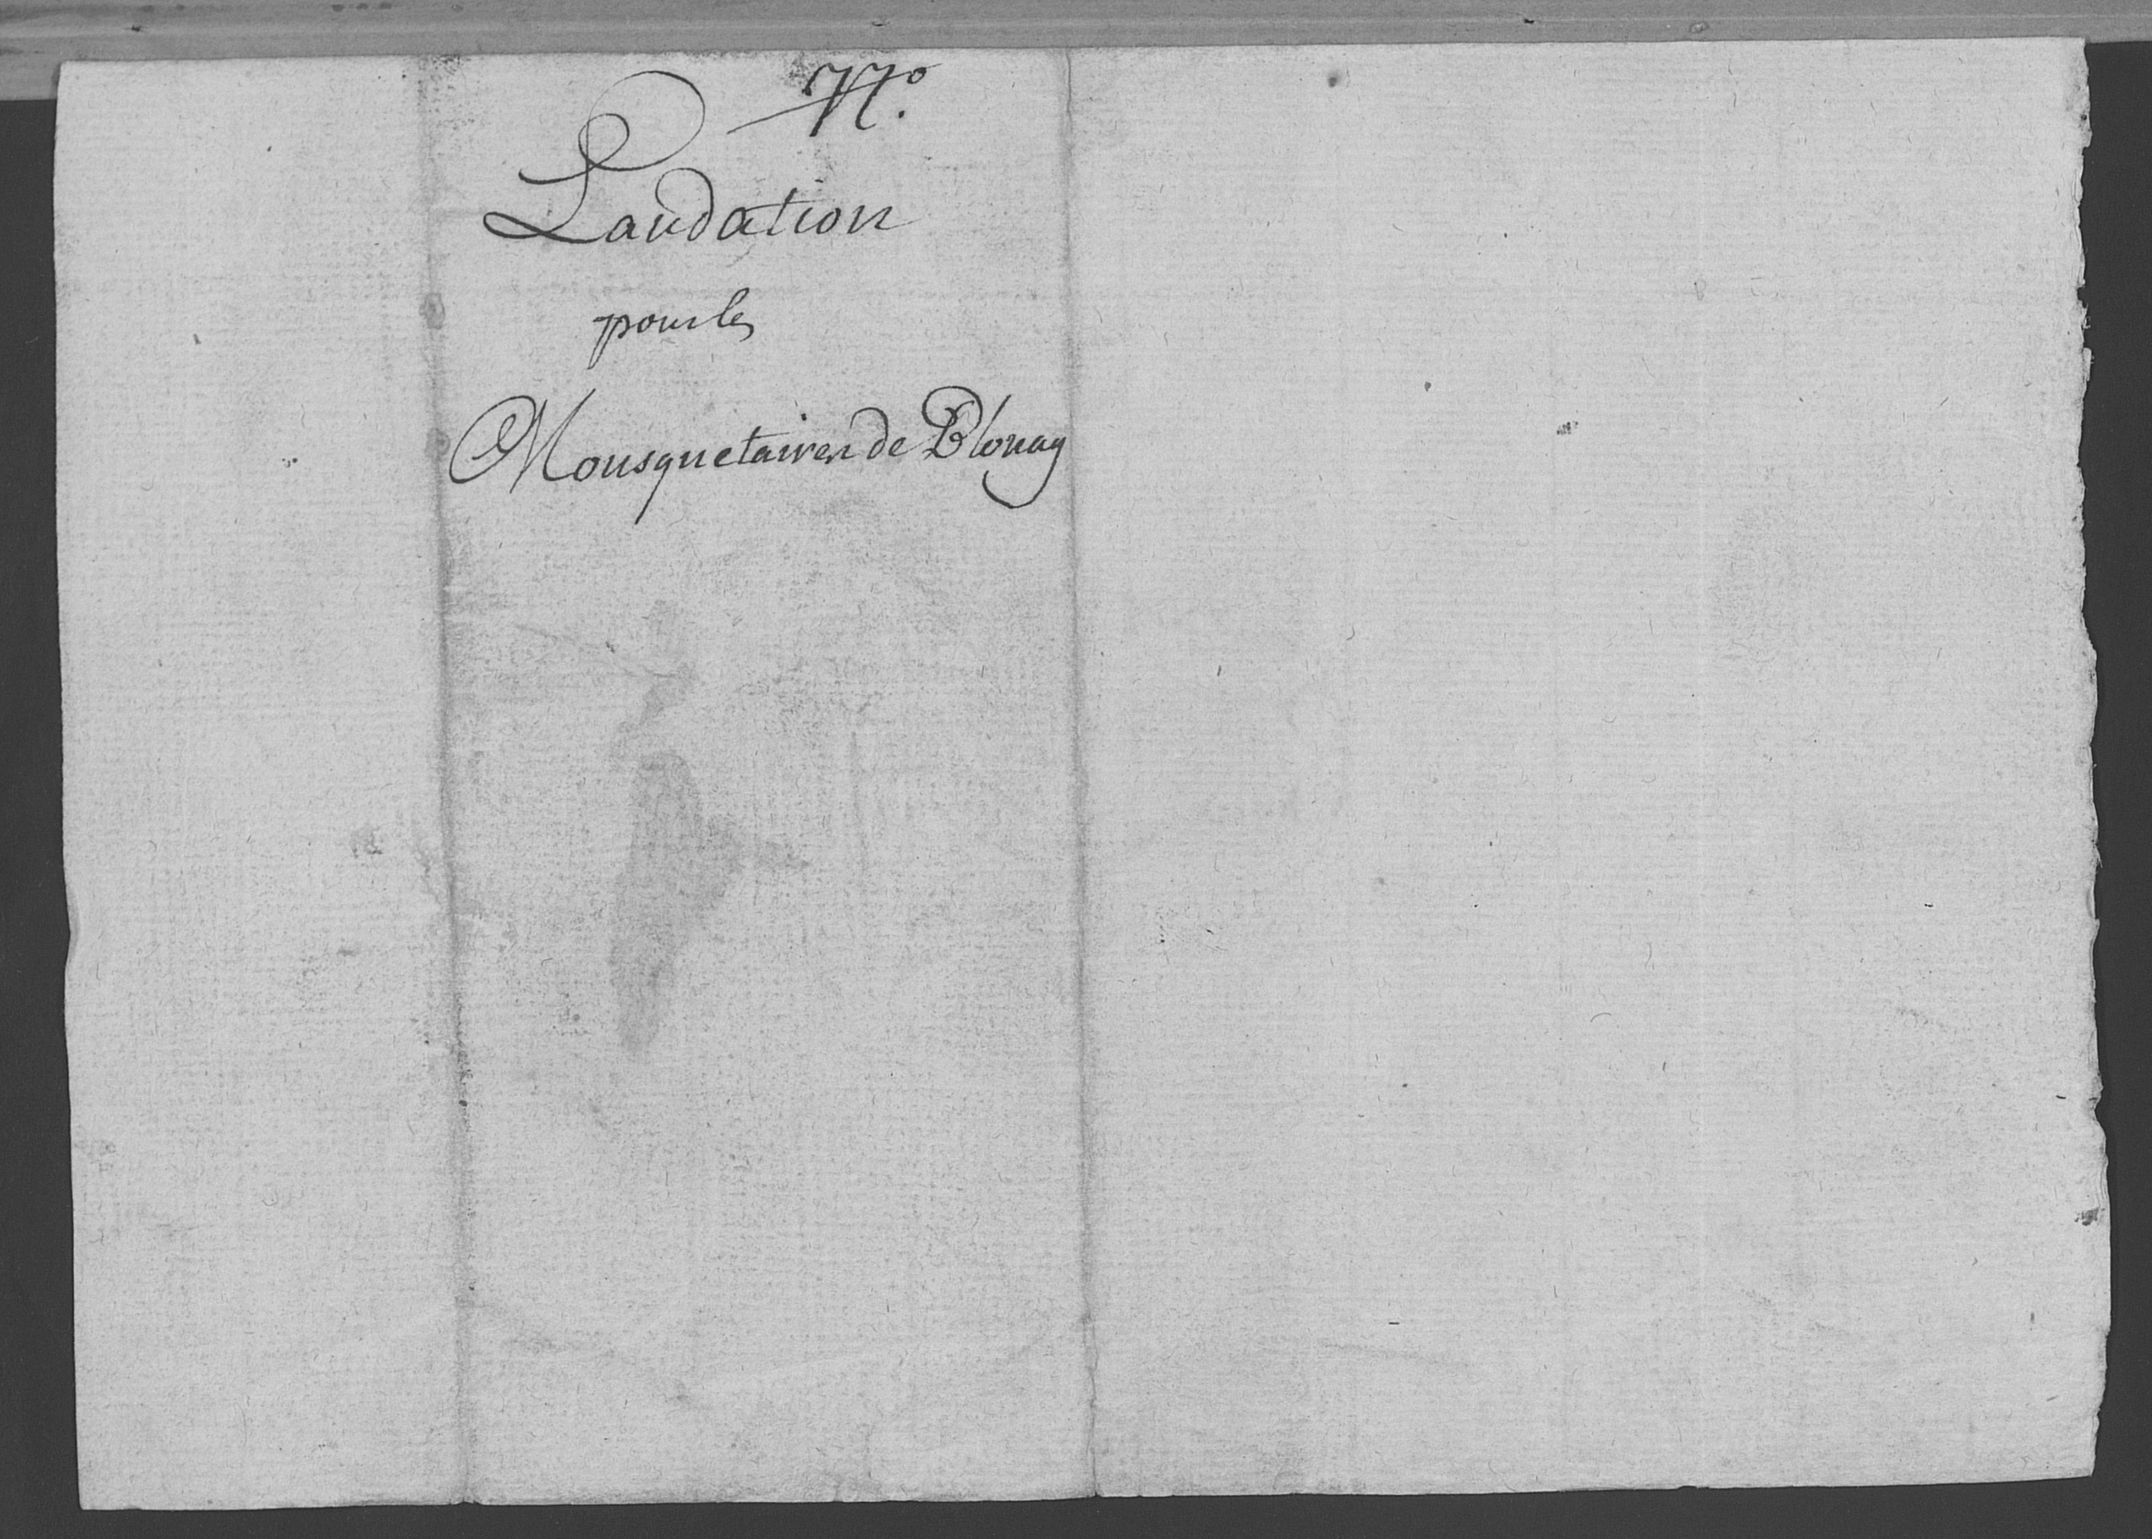 N.º
Laudation
pour les
Mousquetaires de Blonay